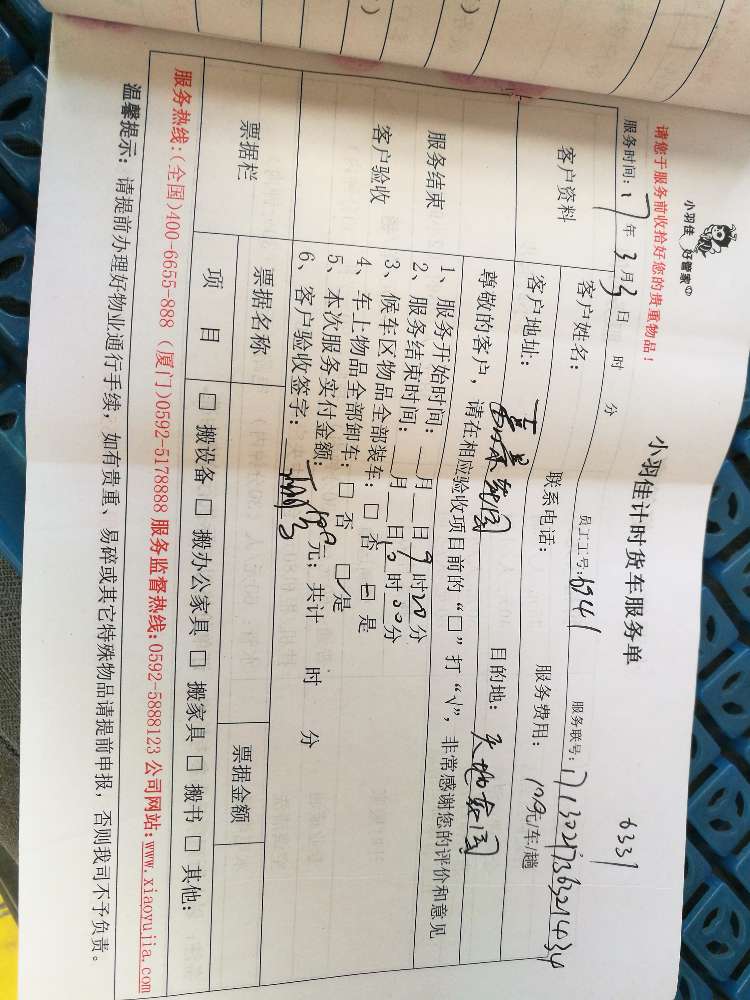 小羽佳 好管家
小羽佳计时货车服务单
6331
请您于服务前收拾好您的贵重物品！
服务时间：17年3月3日 时 分 员工工号：6741 服务联号：
客户资料
客户姓名： 联系电话： 服务费用：
元/车/趟
客户地址： 目的地：天地花园
服务结束
客户验收
尊敬的客户，请在相应验收项目前的“□”打“√”，非常感谢您的评价和意见
1、服务开始时间：__月__日9时20分
2、服务结束时间：__月__日10时20分
3、候车区物品全部装车：□ 否 □ 是
4、车上物品全部卸车：□ 否 □ 是
5、本次服务实付金额： 元；共计 时 分
6、客户验收签字：
票据栏
票据名称 票据金额
项 目 □ 搬设备 □ 搬办公家具 □ 搬家具 □ 搬书 □ 其他：
服务热线：(全国)400-6655-888 (厦门)0592-5178888 服务监督热线：0592-5888123 公司网站：www.xiaoyujia.com
温馨提示：请提前办理好物业通行手续；如有贵重、易碎或其它特殊物品请提前申报，否则我司不予负责。